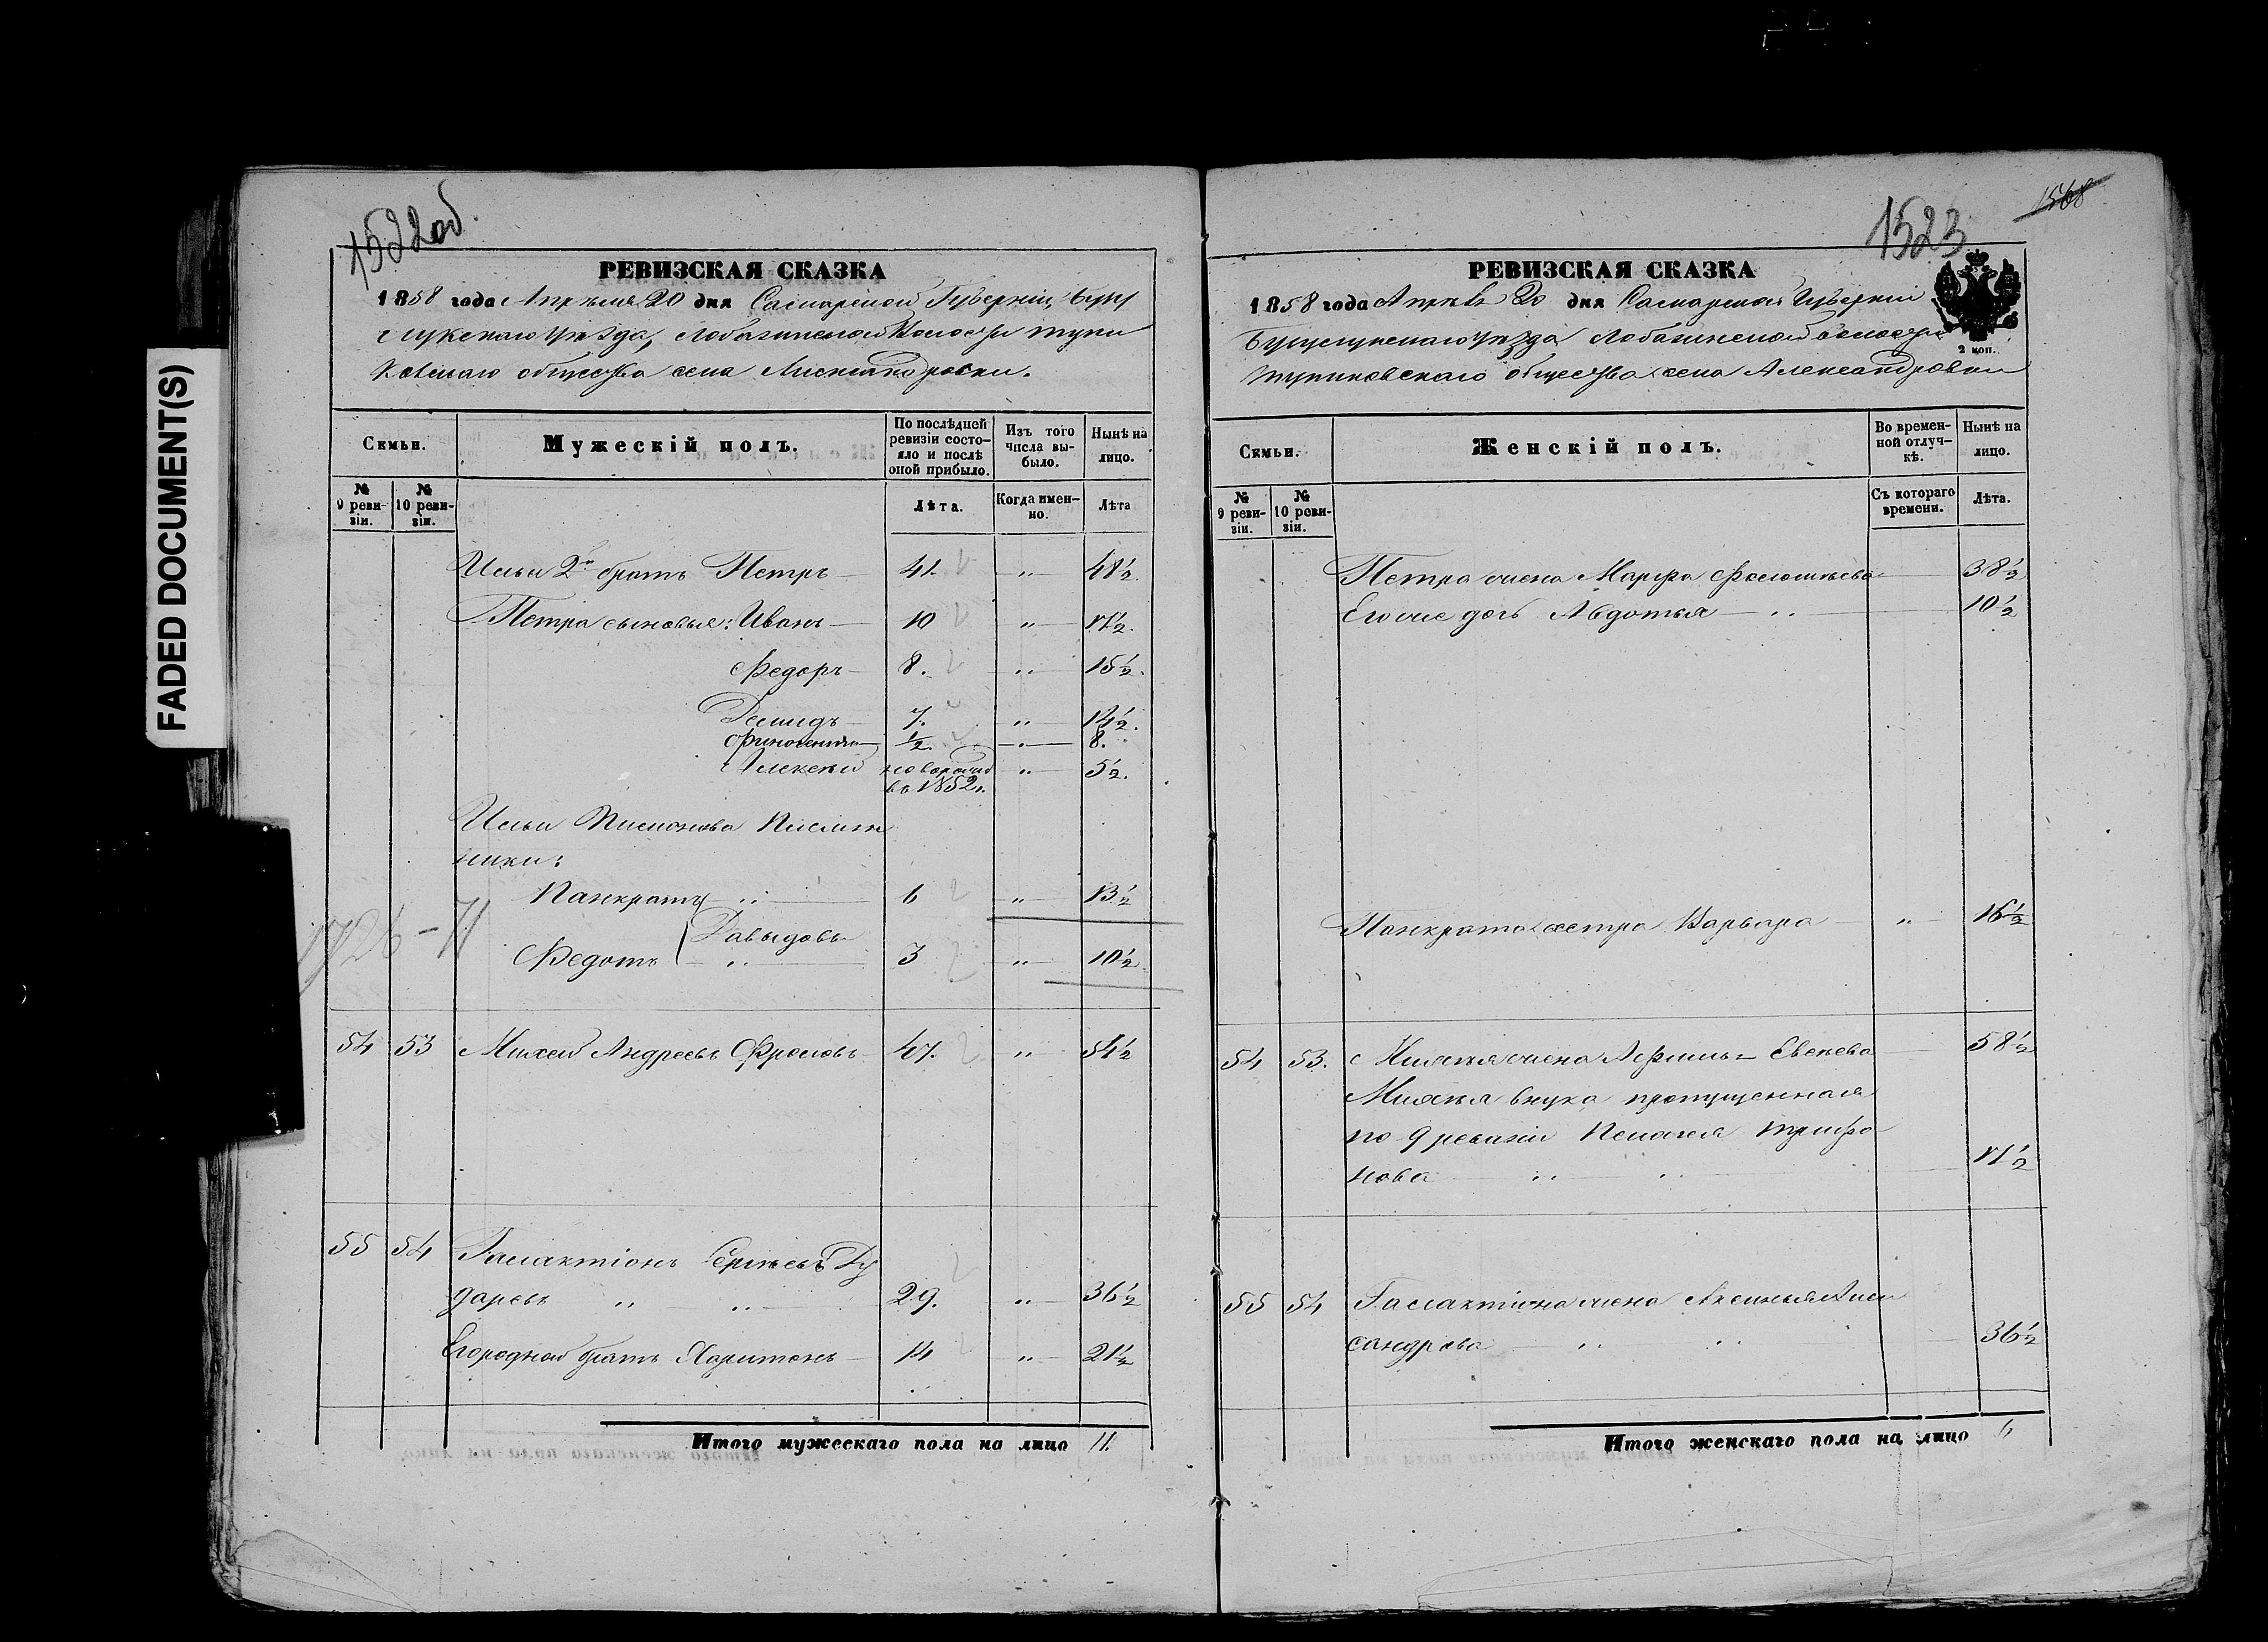 FADED DOCUMENT(S)
1522об.
РЕВИЗСКАЯ СКАЗКА
1858 года Апреля 20 дня Самарской Губерніи, Бугу
Лобазинской Волости Тупи
ковскаго общества села Александровки.
Семьи.
Мужескій полъ.
По послѣдней ревизіи состо-
яло и послѣ
оной прибыло.
Изъ того
числа вы-
было.
Нынѣ на
лицо.
№
9 реви-
зіи.
№
10 реви-
зіи.
Лѣта.
Когда имен-
но.
Лѣта
Ильи 2й братъ Петръ 41. " 48½.
Петра сыновья: Иванъ 10 " 17½.
Федоръ 8. " 15½.
Демидъ 7. " 14½.
½. 8.
Алексѣй новорожд " 5½.
въ 1852.
Ильи Племян
ники:
Панкратъ 6 " 13½
Давыдовы
Федотъ 3 " 10½
54 53 Михей Андреевъ Фроловъ 47. " 54½
55 54 Галактіонъ Сергѣевъ Ду
даревъ " " 29. " 36½
Егородной братъ Харитонъ 14 " 21½
Итого мужескаго пола на лицо 11.
1523
1568
РЕВИЗСКАЯ СКАЗКА
1858 года Апрѣля 20 дня Самарской Губерніи
Бугурусланскаго уѣзда Лобазинской волости
Тупиковскаго общества села Александровки
2 коп.
Семьи.
Женскій полъ.
Во времен-
ной отлуч-
кѣ.
Нынѣ на
лицо.
№
9 реви-
зіи.
№
10 реви-
зіи.
Съ котораго
времени.
Лѣта.
Петра жена Марфа 38½
Его же дочь Авдотья 10½
Панкрата сестра Варвара " 16½
54 53. Михѣя жена 58½
Михѣя внука пропущенная
по 9 ревизіи Пелагея Трифо
нова 17½
55 54 Галактіона жена Аксинья Алек
сандрова 36½
Итого женскаго пола на лицо 6